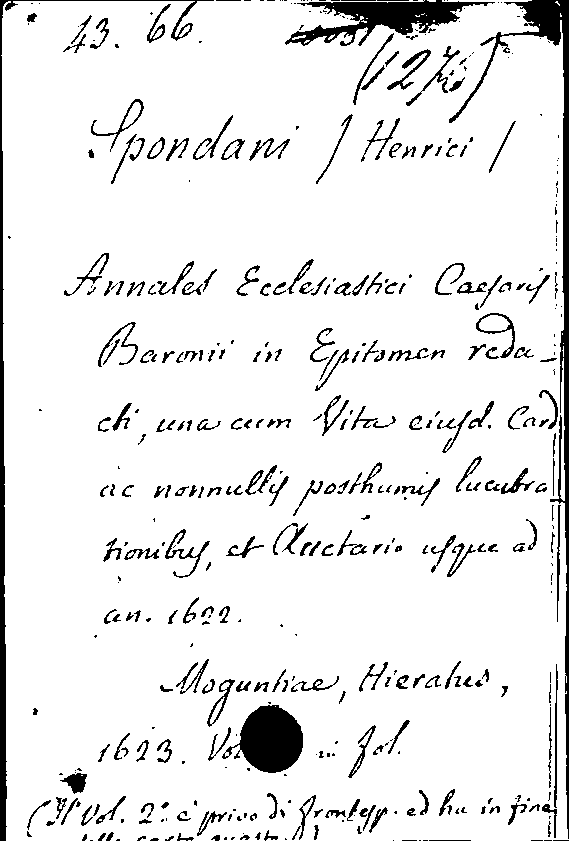 43. 66.
(1276)
Spondani / Henrici /
Annales Ecclesiastici Caesaris
Baronii in Epitomen reda-
cti, una cum Vita eiusd. Card
ac nonnullis posthumis lucubra
tionibus, et Auctario usque ad
an. 1622.
Moguntiae, Hieratus,
1623. Vol in fol.
(Il Vol. 2.° è privo di frontesp. ed ha in fine